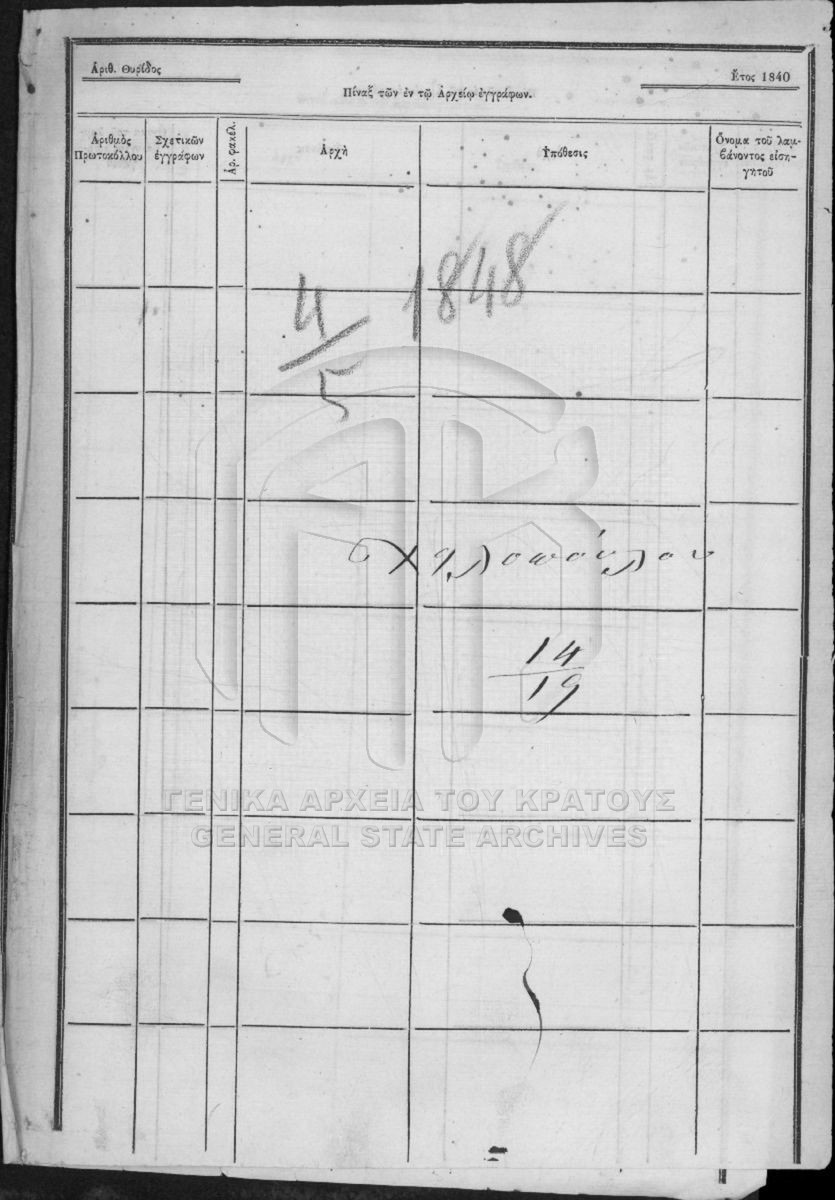 Ἀριθ. Θυρίδος
Ἔτος 1840
Πίναξ τῶν ἐν τῷ Ἀρχείῳ ἐγγράφων.
Ἀριθμὸς Πρωτοκόλλου
Σχετικῶν ἐγγράφων
Ἀρ. φακέλ.
Ἀρχὴ
Ὑπόθεσις
Ὄνομα τοῦ λαμ-
βάνοντος εἰση-
γητοῦ
4/5 1848
14/19
ΓΕΝΙΚΑ ΑΡΧΕΙΑ ΤΟΥ ΚΡΑΤΟΥΣ
GENERAL STATE ARCHIVES